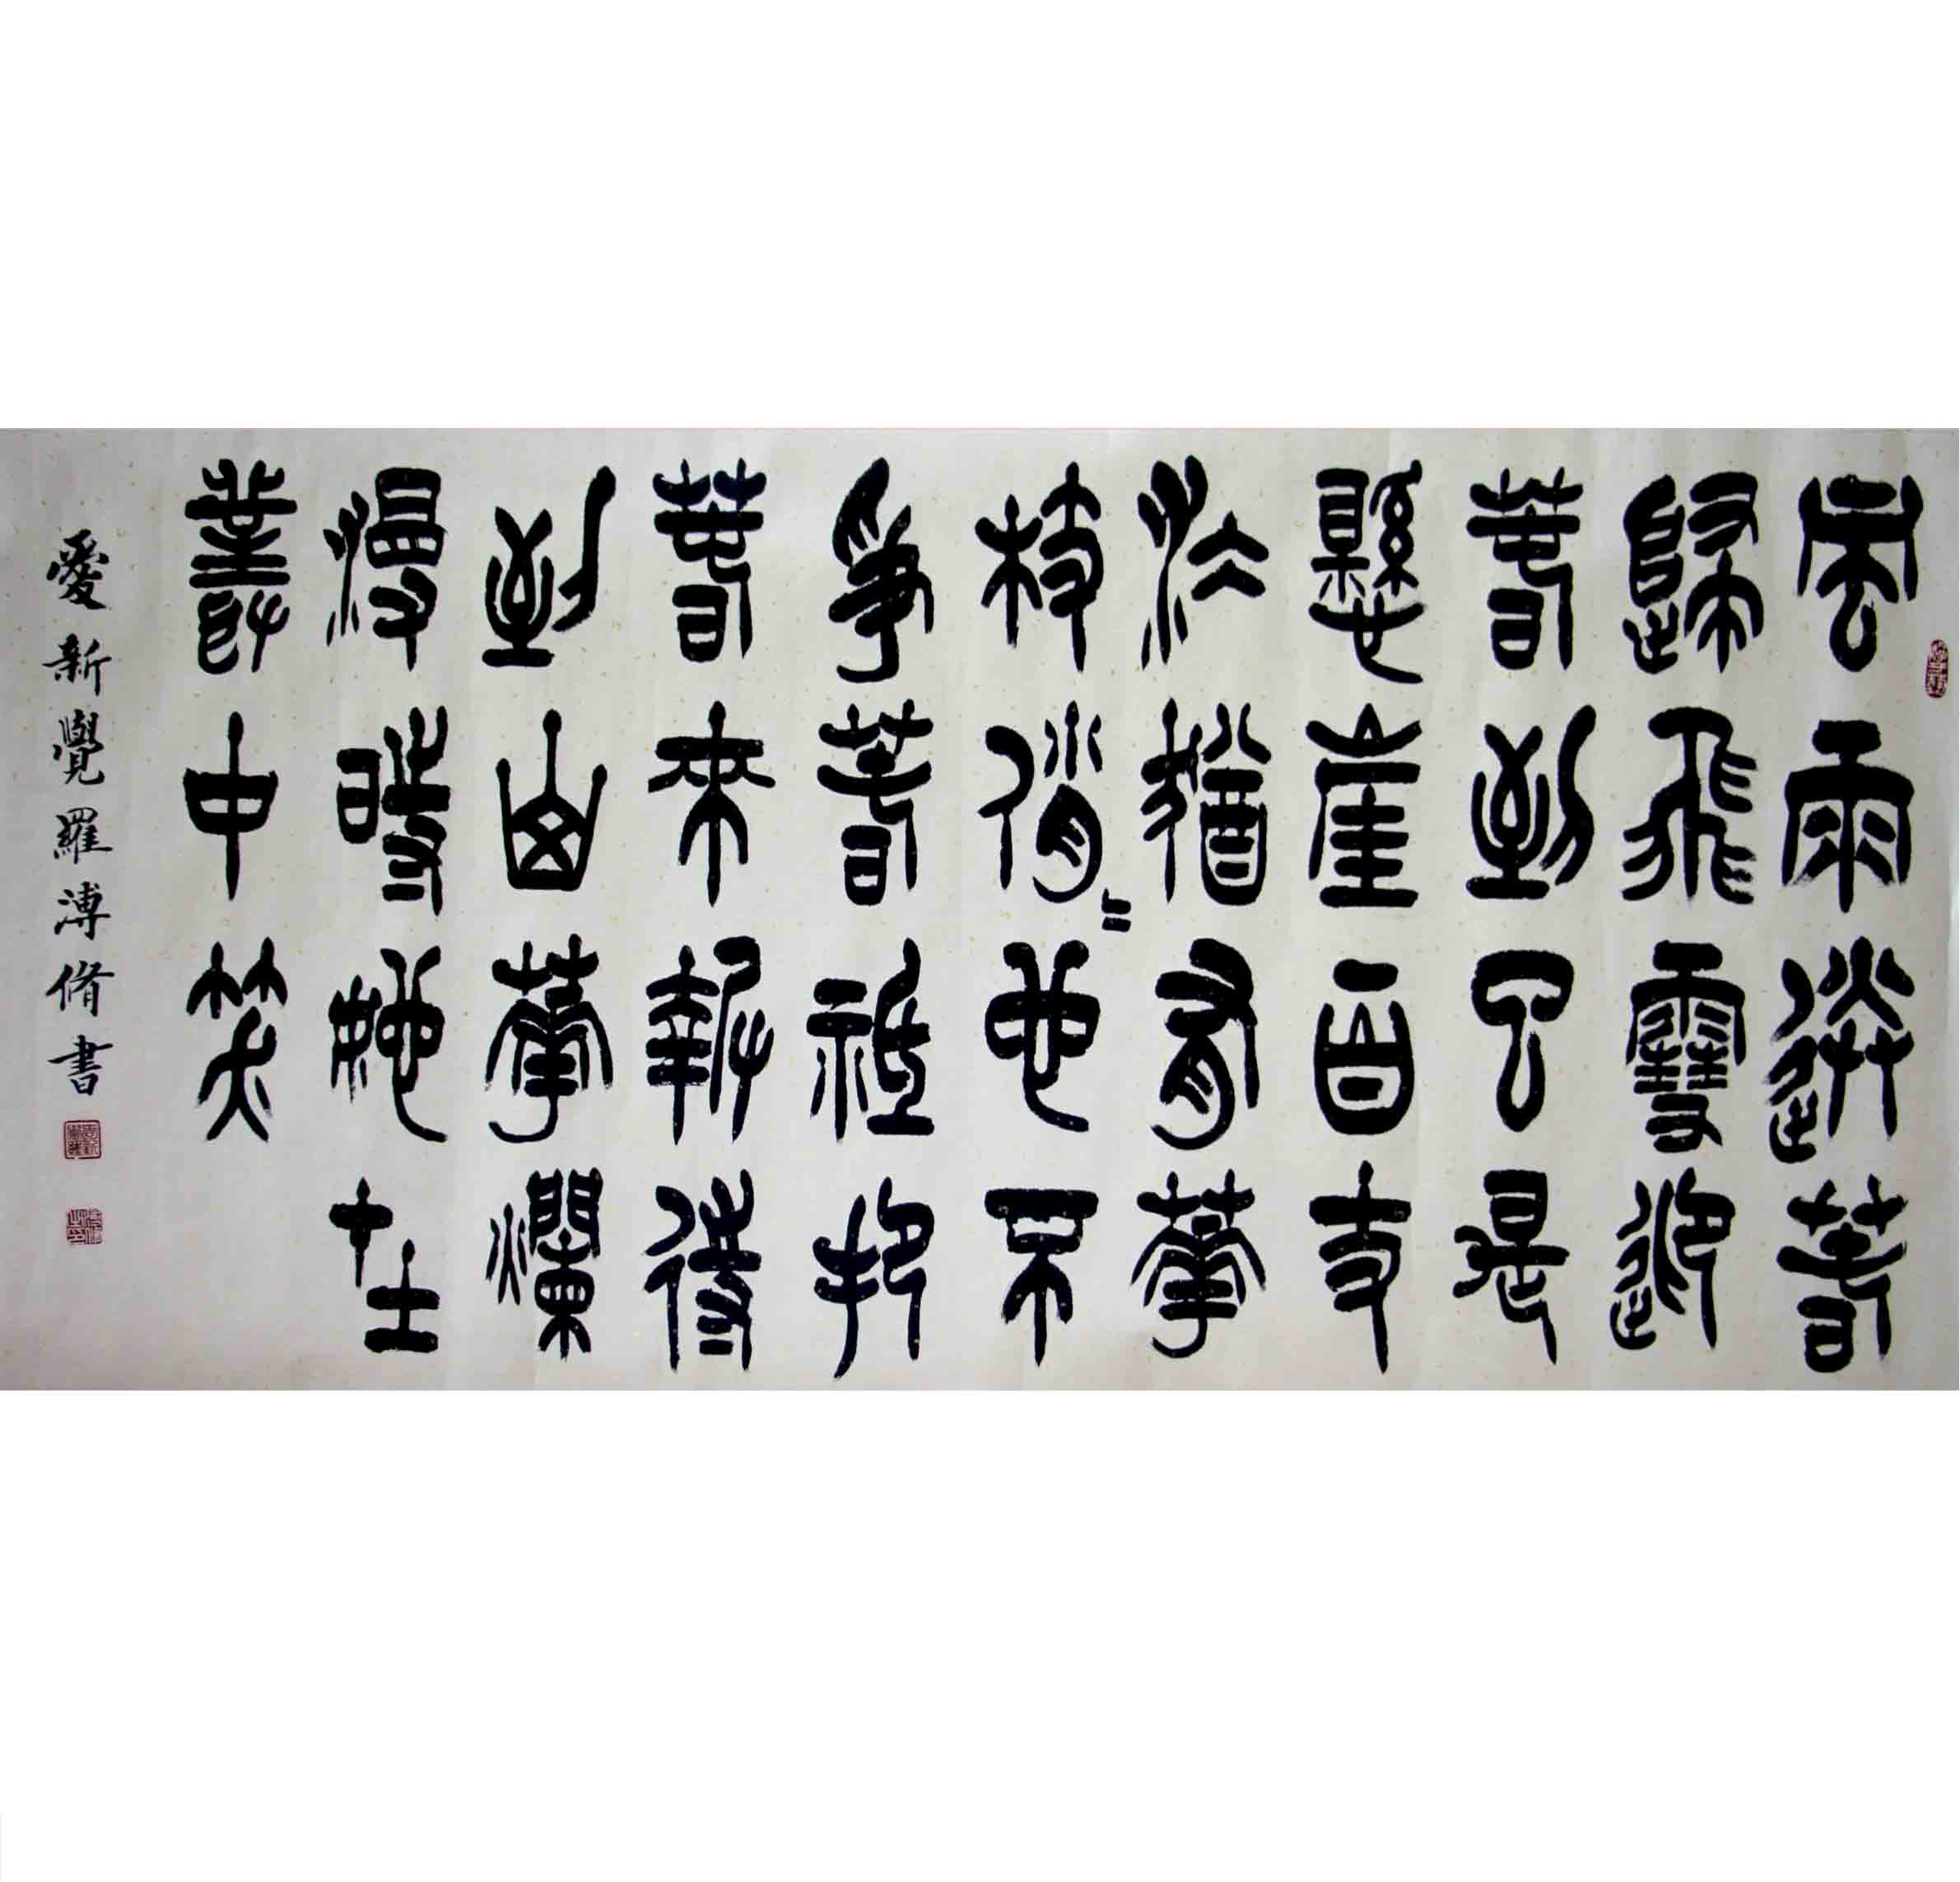 風雨送春
歸飛雪迎
春到已是
懸崖百丈
冰猶有花
枝俏〻也不
爭春祗把
春來報待
到山花爛
漫時她在
叢中笑
愛新覺羅溥脩書